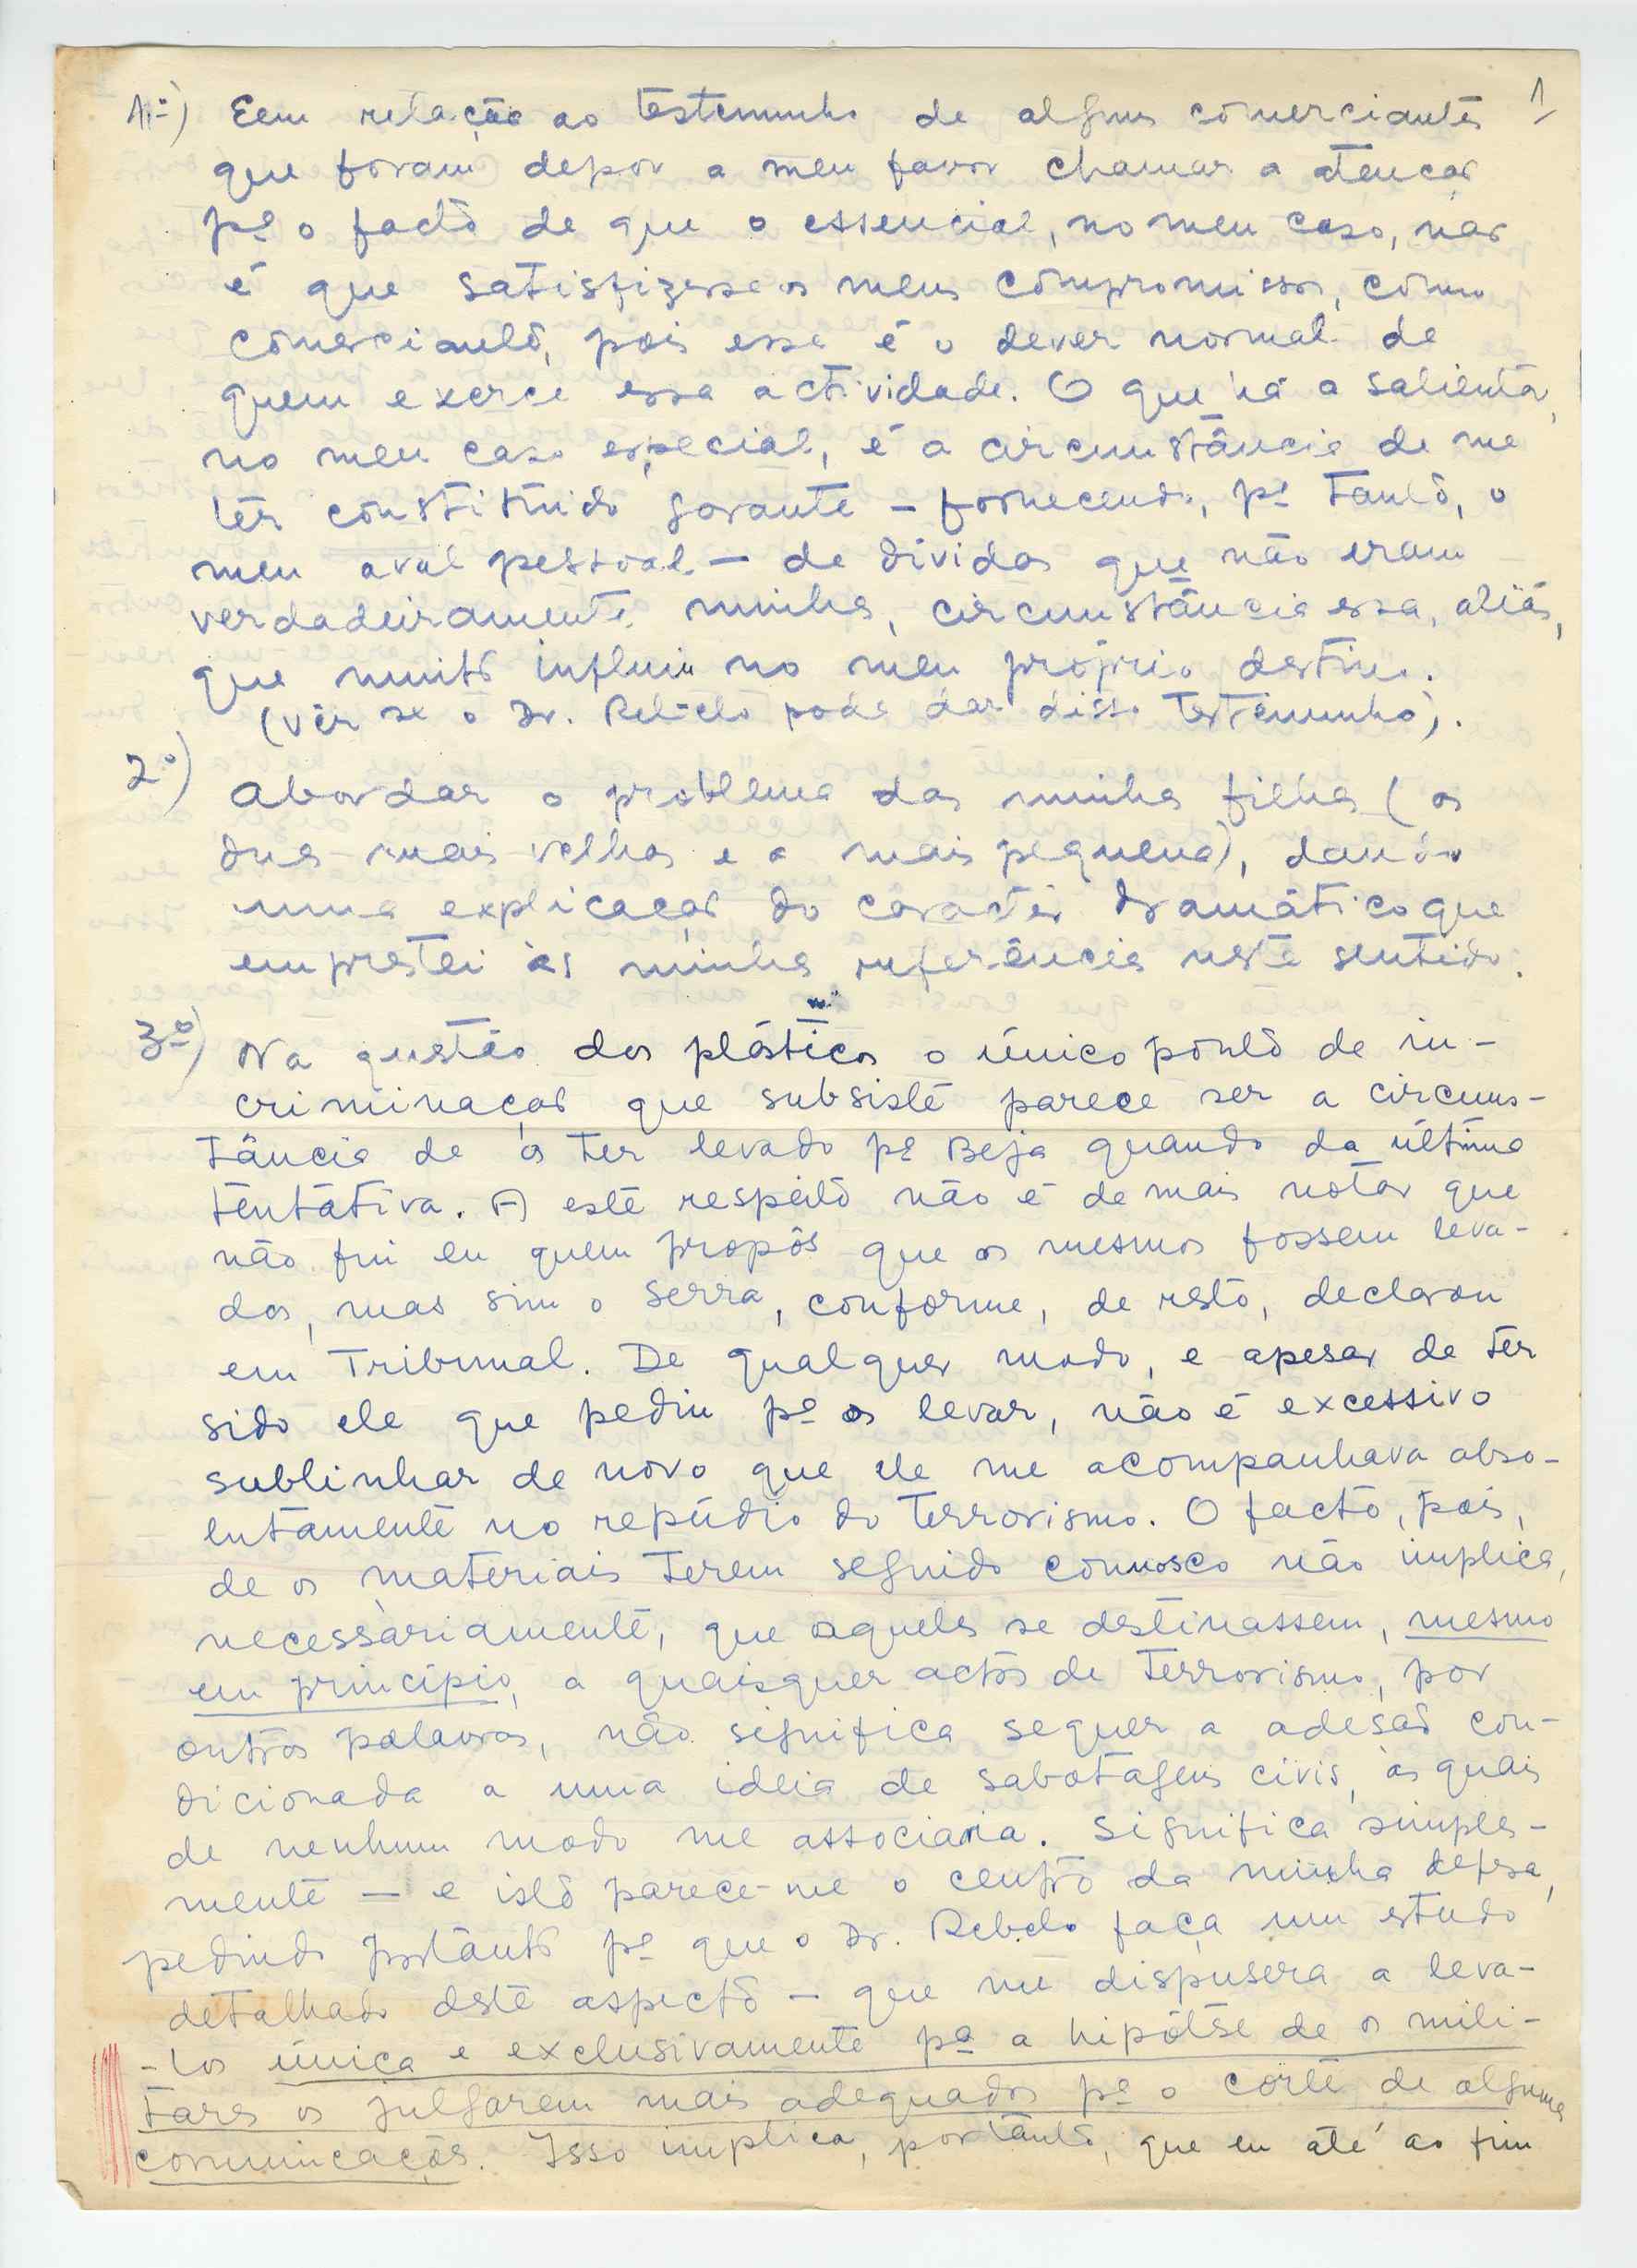 1
1º) Eem relação ao testemunho de alguns comerciantes
que foram depor a meu favor chamar a atenção
pª o facto de que o essencial, no meu caso, não
é que satisfizesse os meus compromissos, como
comerciante, pois esse é o dever normal de
quem exerce essa actividade. O que há a salientar,
no meu caso especial, é a circunstância de me
ter constituído garante – fornecendo, pª tanto, o
meu aval pessoal – de dívidas que não eram
verdadeiramente minhas, circunstância essa, aliás,
que muito influiu no meu próprio destino.
(ver se o Dr. Rebelo pode dar disso testemunho).
2º)
Abordar o problema das minhas filhas (as
duas mais velhas e a mais pequena), dando
uma explicação do carácter dramático que
emprestei às minhas referências neste sentido.
3º) Na questão dos plásticos o único ponto de in-
criminação que subsiste parece ser a circuns-
tância de os ter levado pª Beja quando da última
tentativa. A este respeito não é demais notar que
não fui eu quem propôs que os mesmos fossem leva-
dos, mas sim o Serra, conforme, de resto, declarou
em Tribunal. De qualquer modo, e apesar de ter
sido ele que pediu pª os levar, não é excessivo
sublinhar de novo que ele me acompanhava abso-
lutamente no repúdio do terrorismo. O facto, pois,
de os materiais terem seguido connosco não implica,
necessàriamente, que aqueles se destinassem, mesmo
em princípio, a quaisquer actos de terrorismo, por
outras palavras, não significa sequer a adesão con-
dicionada a uma ideia de sabotagens civis, às quais
de nenhum modo me associaria. Significa simples-
mente – e isto parece-me o centro da minha defesa,
pedindo portanto pª que o Dr. Rebelo faça um estudo
detalhado deste aspecto – que me dispusera a leva-
-los única e exclusivamente pª a hipótese de os mili-
tares os julgarem mais adequados pª o corte de algumas
comunicações. Isso implica, portanto, que eu até ao fim